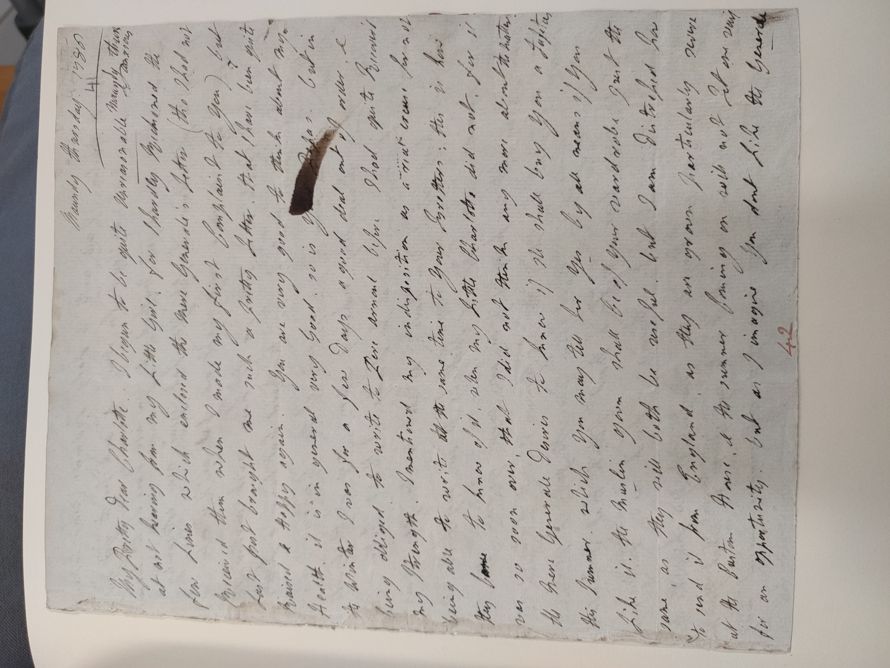 Maundy thursday. 1786
My Pretty Dear Charlotte. I began to be quite
at not hearing from my Little Girl. for I hardly Reckoned the
few Lines which enclosed the Mere Generale's Letter (tho I had not
Received them when I made my first Complaint to you) but
Last post brought me such a pretty Letter. that I have been quite
& Happy again. You are very good to think about my
Health. it is in general very good. so is but in
the Winter I was for a few Days a good deal out of order. &
being obliged to write to before I had quite Recover'd
my Strength. I mentioned my indisposition as a reason for not
being able to write at the same time to Your Brothers: this is how
they to know of it, when my Little Charlotte did not. for it
was so soon over, that I did not think any more about the matter
the Mere Generale Desires to know if she shall buy you a
this Summer. which you may tell her Yes by all means if You
Like it. the Muslin gown shall be of Your Wardrobe just the
same as they will both be useful. but I am Distressed how
to send it from England. as they are grown particularly severe
at the Custom House, & the summer Coming on will not Let me wait
for an opportunity. but as I imagine you dont Like the Generale
42